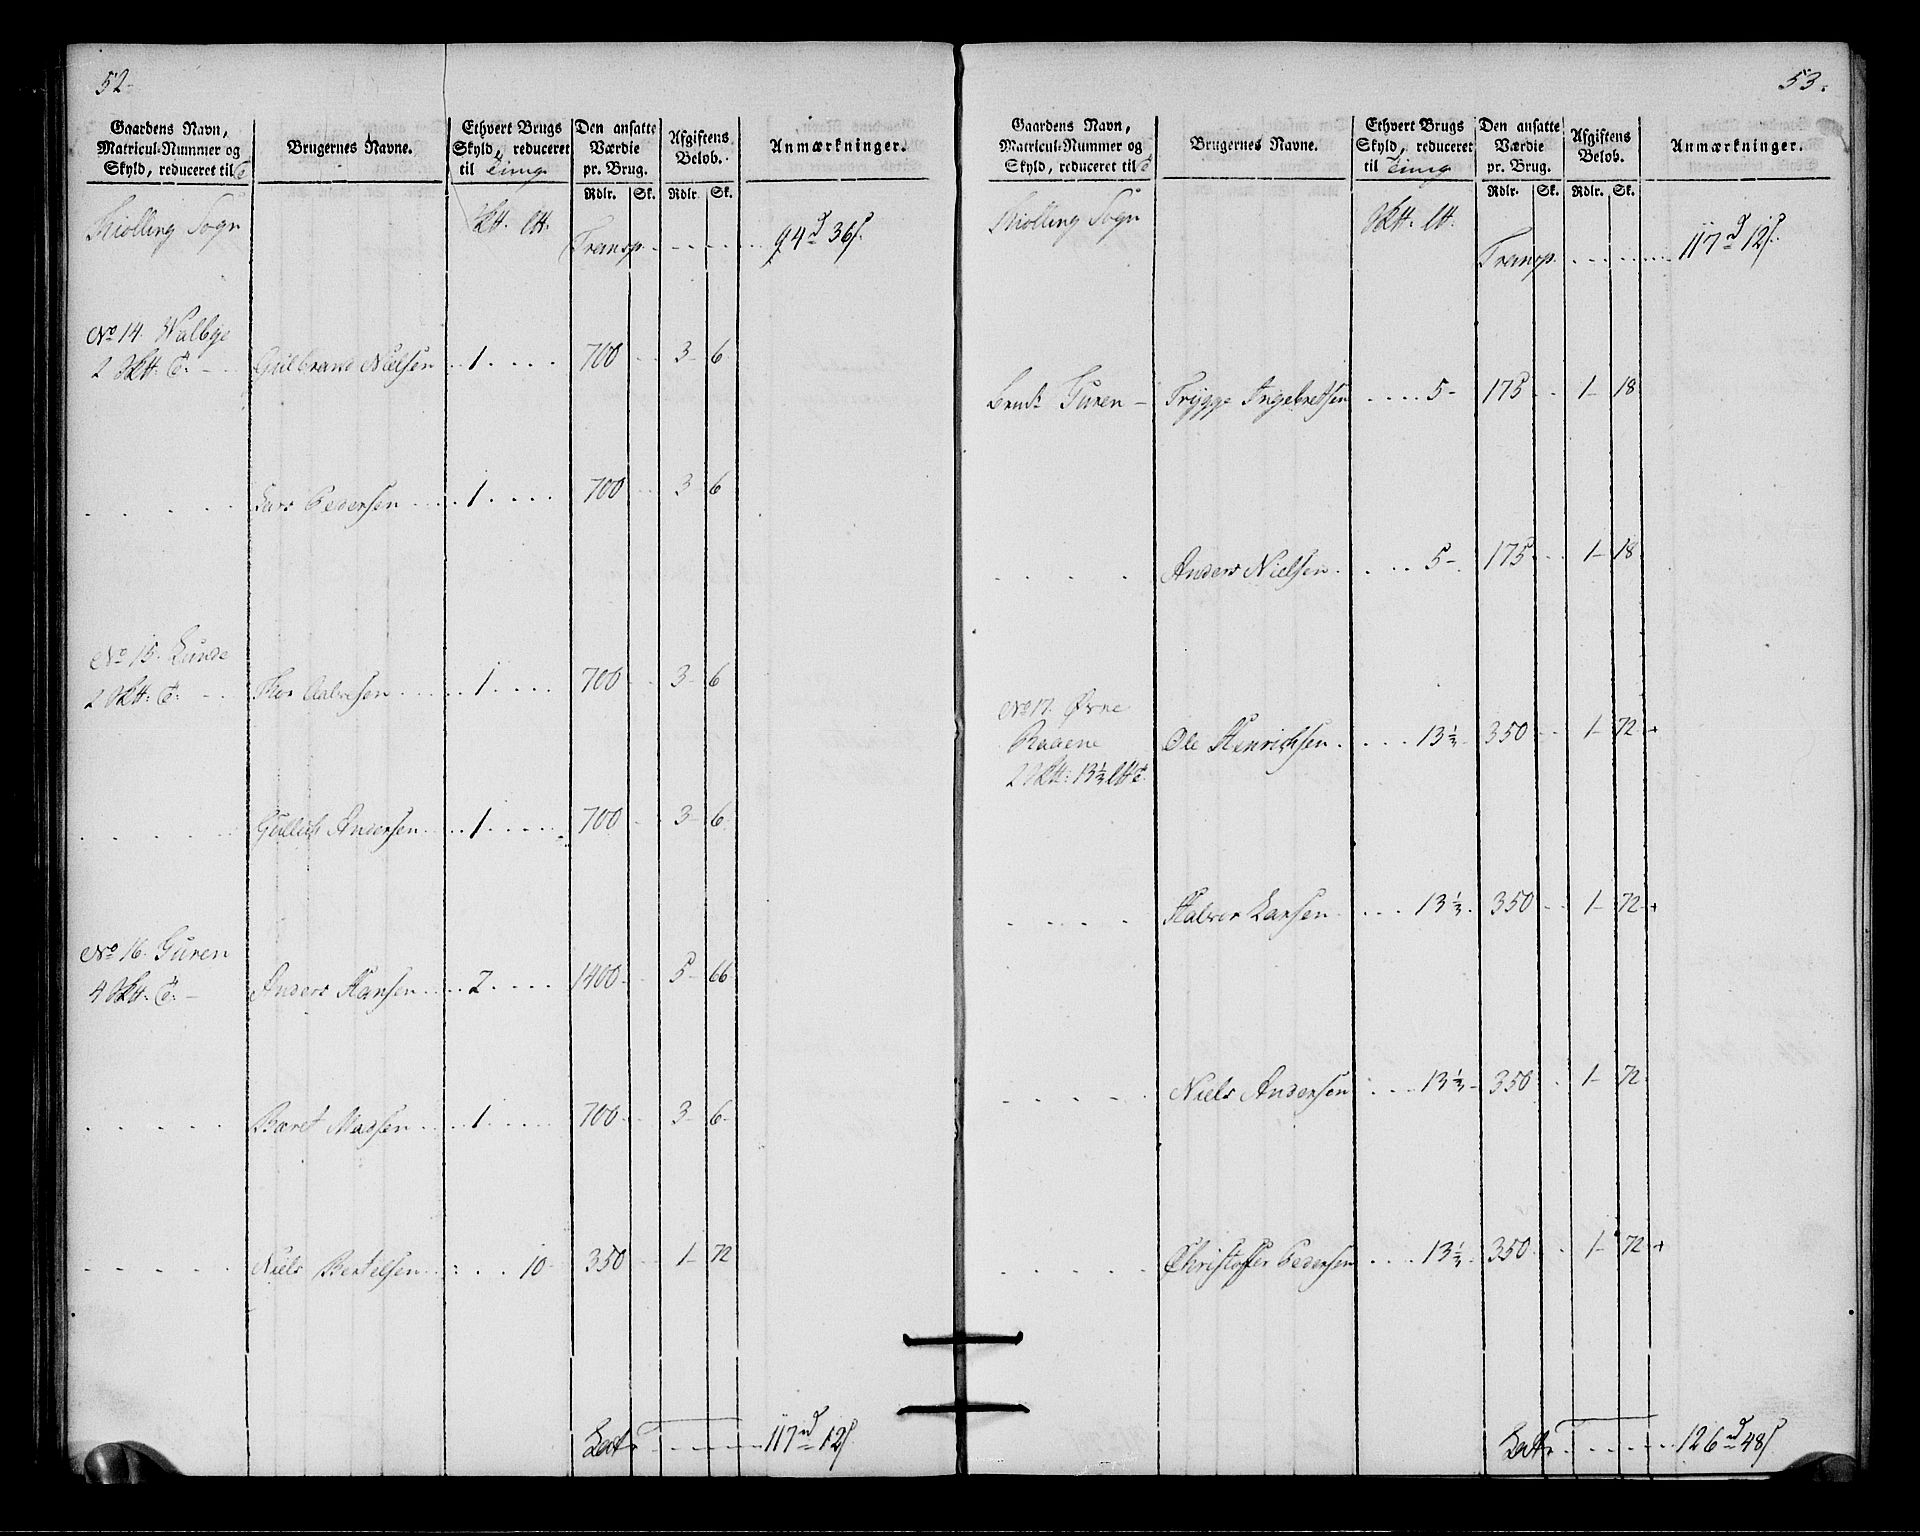 52.
Gaardens Navn, Matricul-Nummer og Skyld, reduceret til T | Brugernes Navne. | Ethvert Brugs Skyld, reduceret til Tung | Den ansatte Værdie pr. Brug. Rdlr. Sk. | Afgiftens Beløb. Rdlr. Sk. | Anmærkninger.
Thiølling Sogn Sktt. ltt. Transp. . . . . . . 94d 36s.
No 14. Walbye
2 Sktt. T. - Gulbrand Nielsen . . 1 . . . . 700 . . 3- 6
. . . . . Lars Pedersen . . . . . 1 . . . . 700 . . 3 6
No 15. Lunde
2 Sktt. T. - Thor Halvorsen . . . . . 1 . . . . 700 . . 3- 6
. . . . . Gullich Andersen . . . . 1 . . . . . 700 . . 3- 6
No 16. Guren
4 Sktt. T. - Anders Hansen . . . . 2 . . . . 1400 . . 5- 66
. . . . . Baret Madsen . . . . 1 . . . . . 700 . . 3- 6
. . . . . Niels Bertelsen . . . . . 10 - 350 . . 1- 72
Lats . . . . . 117d 12s
53.
Gaardens Navn, Matricul-Nummer og Skyld, reduceret til T | Brugernes Navne. | Ethvert Brugs Skyld, reduceret til Tung | Den ansatte Værdie pr. Brug. Rdlr. Sk. | Afgiftens Beløb. Rdlr. Sk. | Anmærkninger.
Thiølling Sogn Sktt. ltt. Transp. . . . . . . 117d 12s.
Guren - Trygge Ingebretsen . . . . 5- 175 . . 1- 18
. . . . Anders Nielsen . . . . 5- 175 . . 1- 18
No 17. Øvre
Rauene Ole Henrichsen . . . . 13 1/3 . 350 . . 1- 72 +
2 Sktt: 13 1/3 ltt T.
. . . . Halvor Larsen . . . . 13 1/3 . 350 . . 1- 72 +
. . . . . Niels Andersen . . . 13 1/3 - 350 . . 1- 72
. . . . . Christoffer Pedersen . . . 13 1/3 . 350 . . 1- 72 +
Lats . . . . . 126d 48s